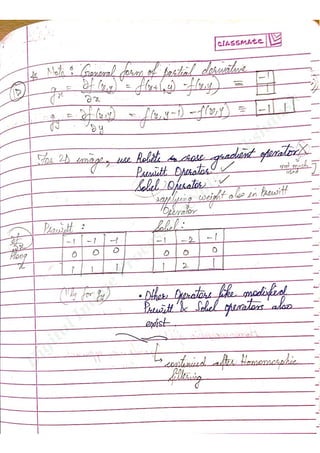 classmate
* Note: General form of partial derivative
gx = ∂f(x,y)/∂x = f(x+1,y) - f(x,y) ≡ -1 1
gy = ∂f(x,y)/∂y = f(x,y-1) - f(x,y) ≡ -1 1
For 2D image, use gradient operator X
Prewitt Operator ✓
Sobel Operator ✓
applying weight also in Prewitt
Operator
Prewitt : Sobel :
-1 -1 -1 -1 -2 -1
0 0 0 0 0 0
1 1 1 1 2 1
(lly for gy)
• Other Operators like modified
Prewitt & Sobel operators also
exist
↳ continued after Homomorphic
filtering